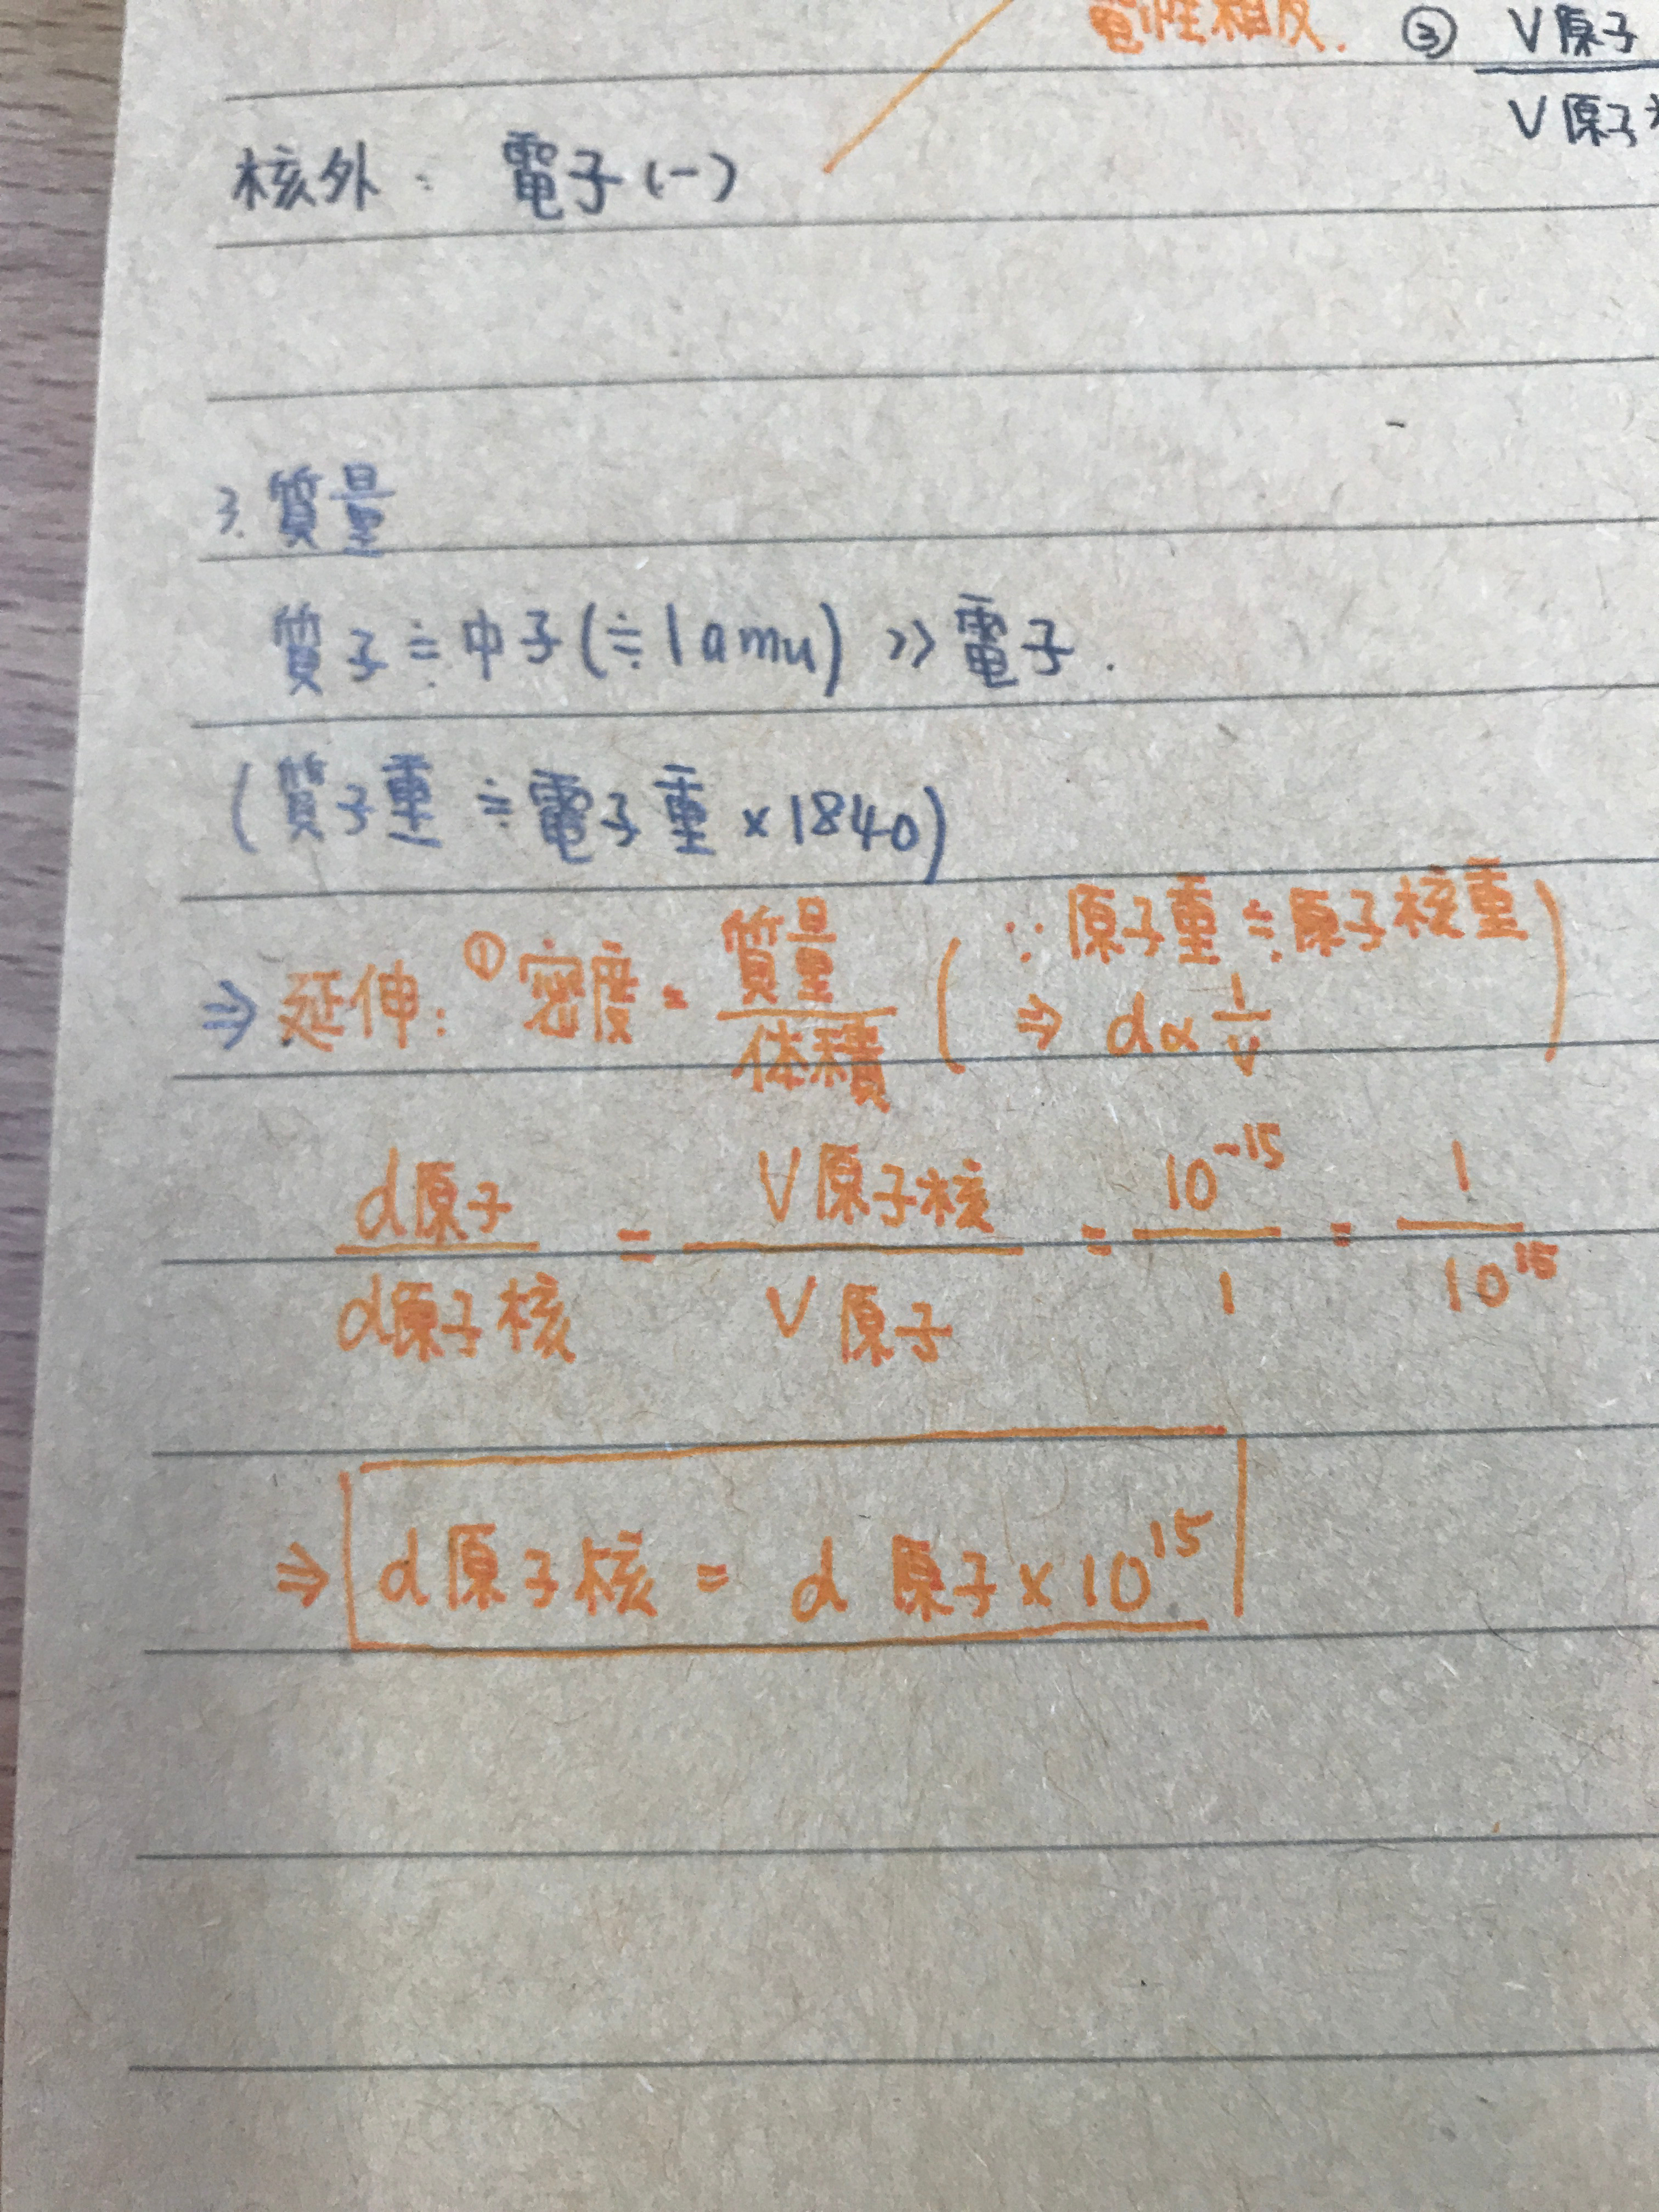 電性相反. ③ V原子
V原子
核外: 電子(-)
3. 質量
質子≒中子(≒1amu) >> 電子.
(質子重≒電子重×1840)
⇒延伸: ①密度=質量/体積 (∵原子重≒原子核重 ⇒ d∝1/V)
d原子/d原子核 = V原子核/V原子 = 10⁻¹⁵/1 = 1/10¹⁵
⇒ d原子核 = d原子×10¹⁵